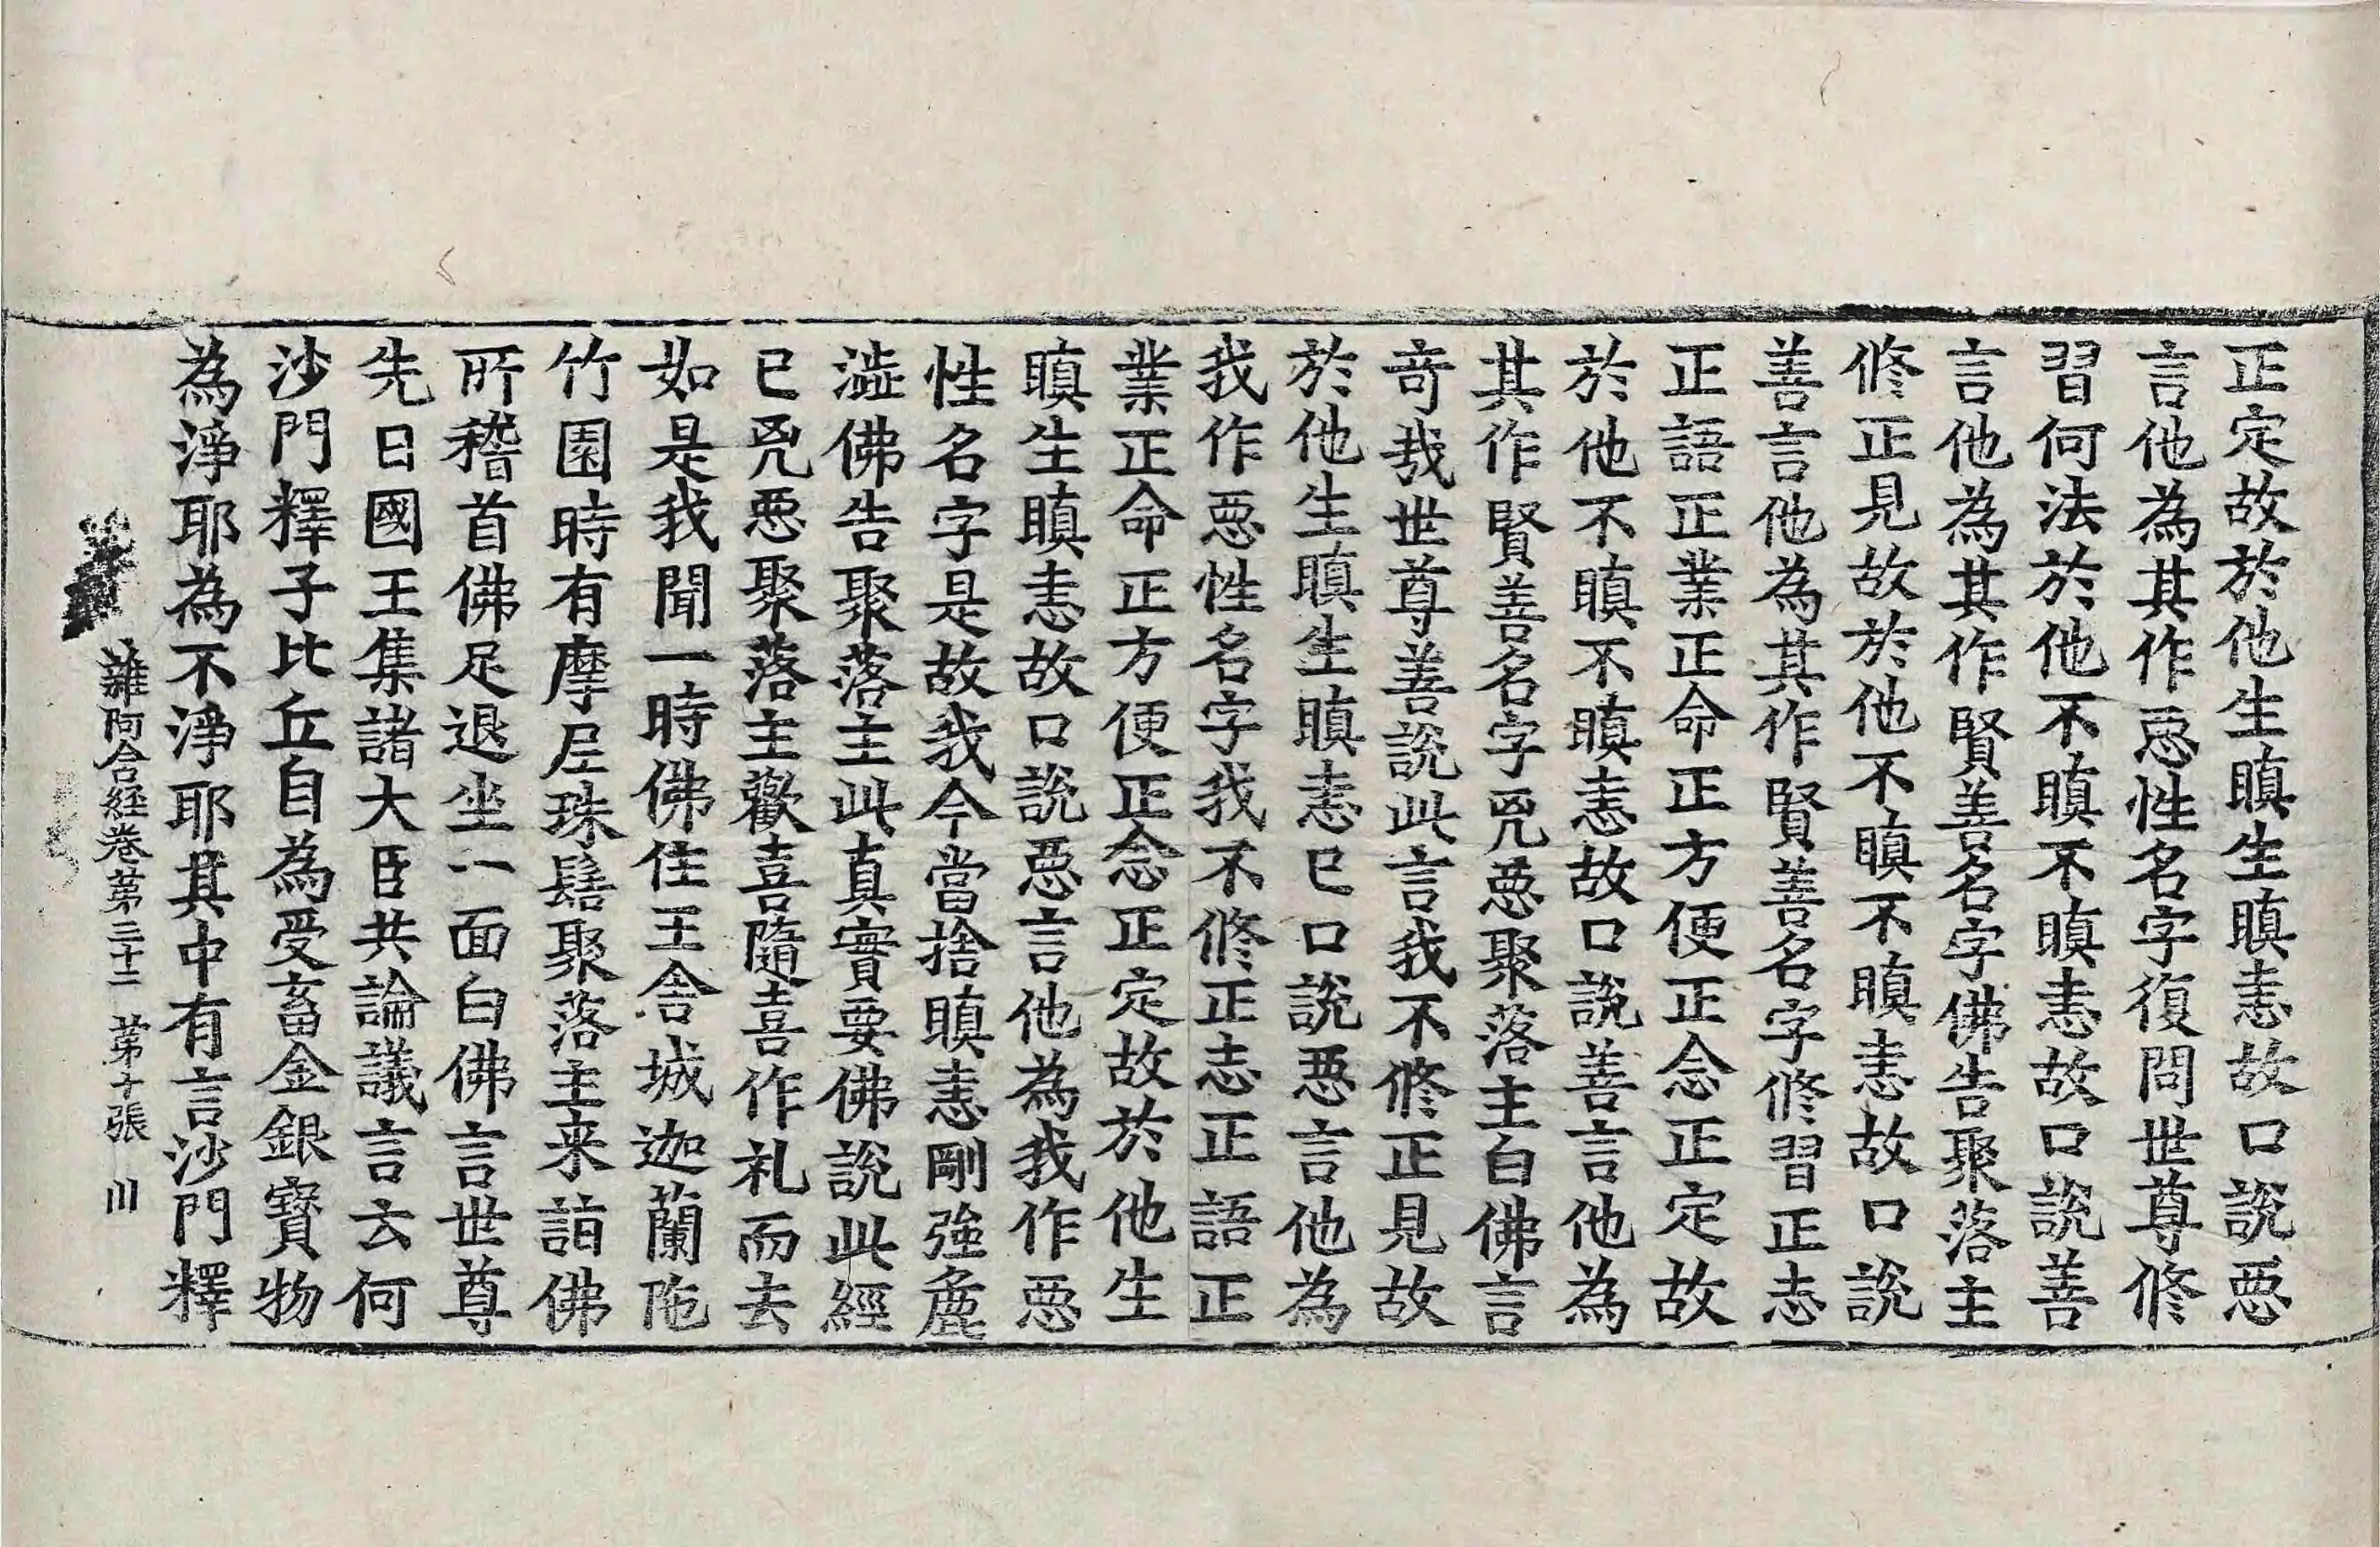 正定故於他生瞋生瞋恚故口說惡
言他為其作惡性名字復問世尊修
習何法於他不瞋不瞋恚故口說善
言他為其作賢善名字佛告聚落主
修正見故於他不瞋不瞋恚故口說
善言他為其作賢善名字修習正志
正語正業正命正方便正念正定故
於他不瞋不瞋恚故口說善言他為
其作賢善名字兇惡聚落主白佛言
奇哉世尊善說此言我不修正見故
於他生瞋生瞋恚已口說惡言他為
我作惡性名字我不修正志正語正
業正命正方便正念正定故於他生
瞋生瞋恚故口說惡言他為我作惡
性名字是故我今當捨瞋恚剛強麁
澁佛告聚落主此真實要佛說此經
已兇惡聚落主歡喜隨喜作礼而去
如是我聞一時佛住王舍城迦蘭陁
竹園時有摩尼珠髻聚落主来詣佛
所稽首佛足退坐一面白佛言世尊
先日國王集諸大臣共論議言云何
沙門釋子比丘自為受畜金銀寶物
為淨耶為不淨耶其中有言沙門釋
雜阿含経卷第三十二 第十張 川